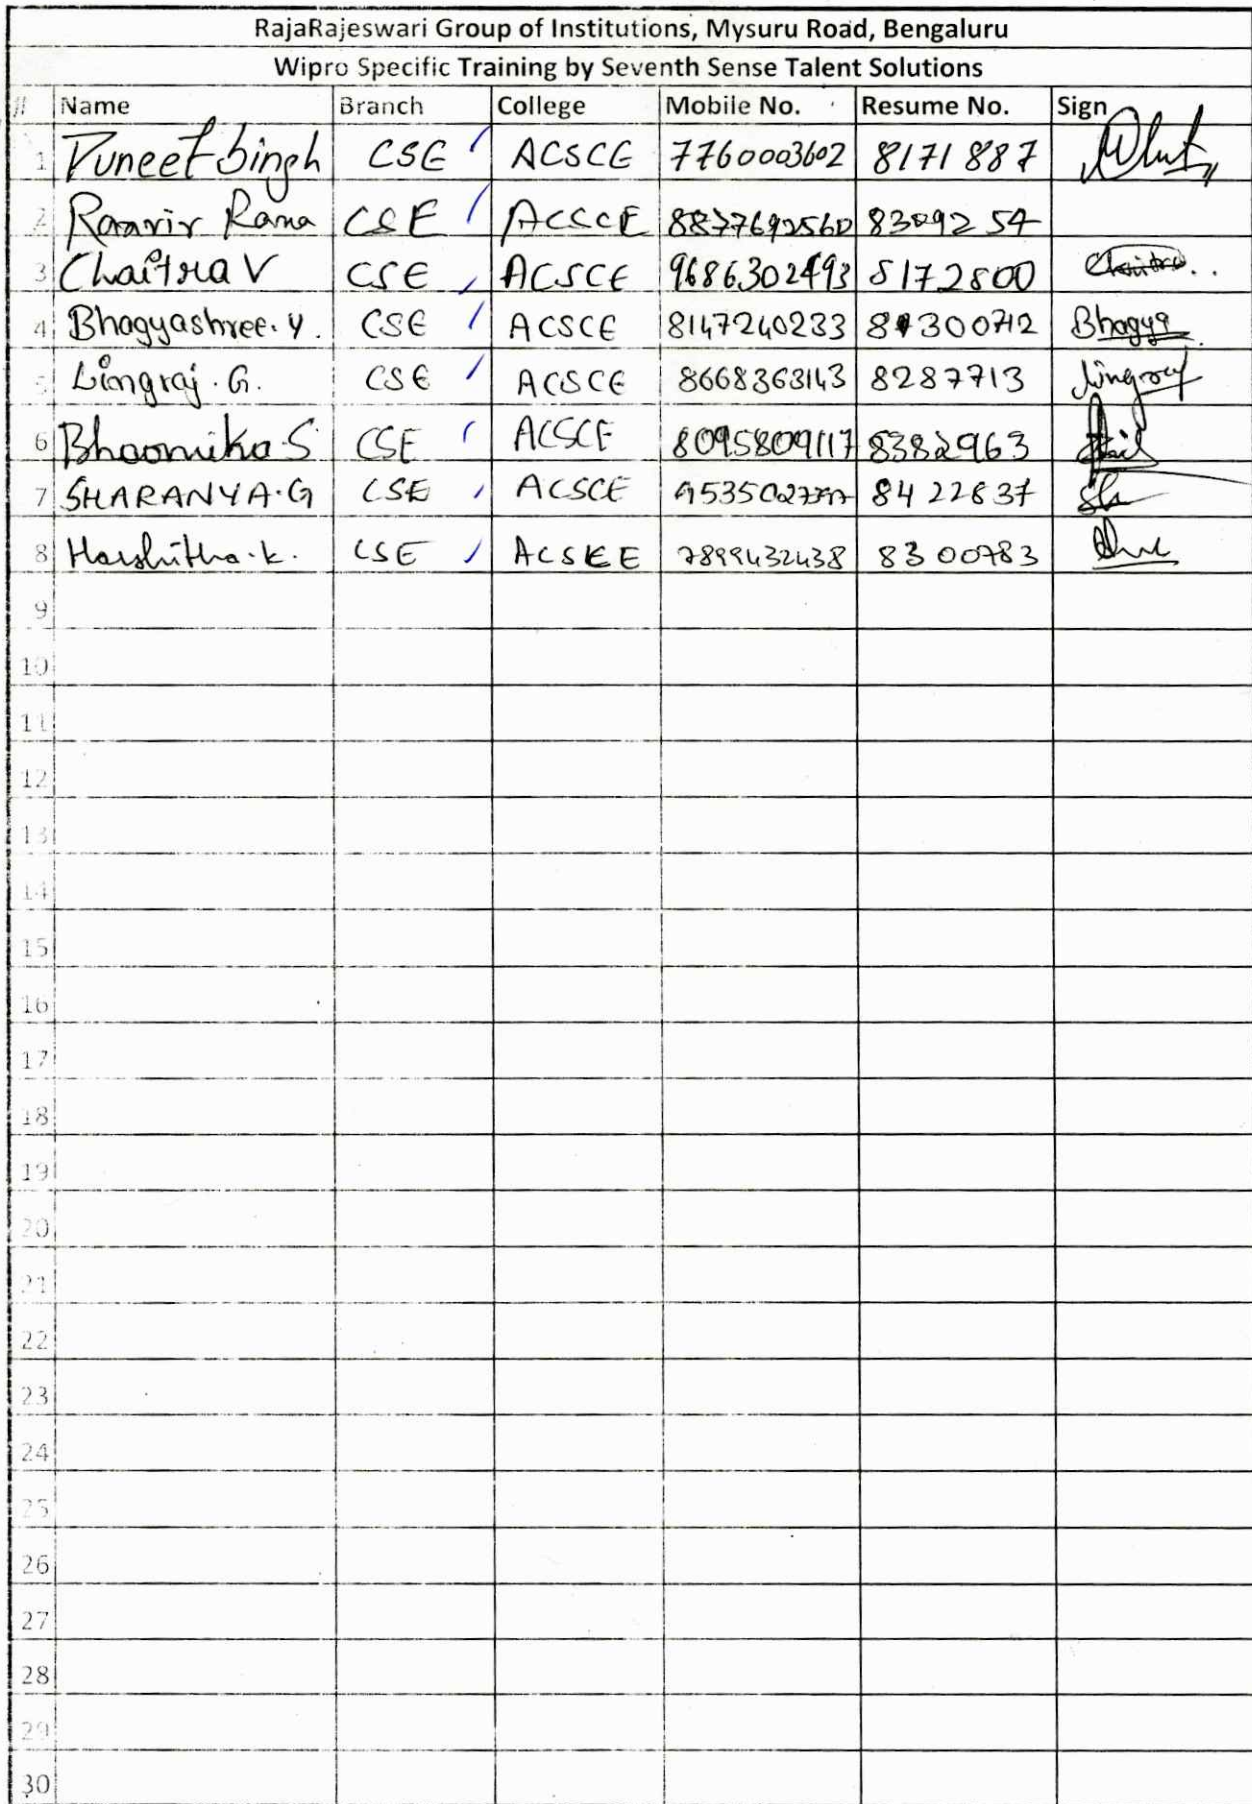 RajaRajeswari Group of Institutions, Mysuru Road, Bengaluru
Wipro Specific Training by Seventh Sense Talent Solutions
# Name Branch College Mobile No. Resume No. Sign
1 Puneet Singh CSE ACSCE 7760003602 8171887
2 Ranvir Rana CSE ACSCE 8877692560 8309254
3 Chaitra V CSE ACSCE 9686302493 8172800 Chaitra..
4 Bhagyashree.Y. CSE ACSCE 8147240233 Bhagya
5 Lingraj.G. CSE ACSCE 8668363143 8287713 Lingraj
6 Bhoomika S CSE ACSCE 8095809117 8382963
7 SHARANYA.G CSE ACSCE 8422837
8 Harshitha.k. CSE ACSEE 7899432438 8300783
9
10
11
12
13
14
15
16
17
18
19
20
21
22
23
24
25
26
27
28
29
30